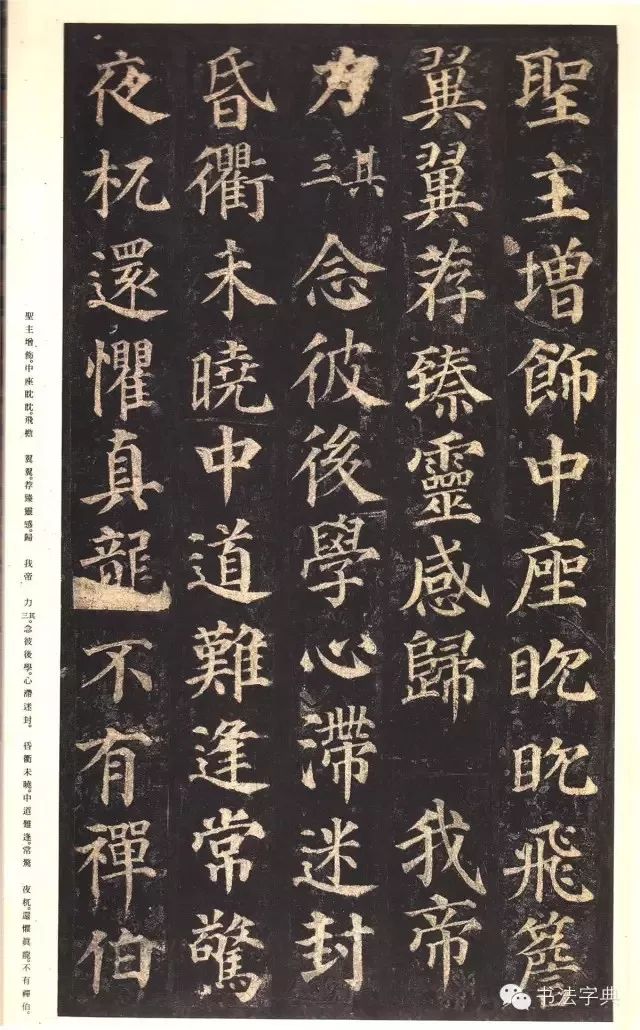 聖主增飾中座眈眈飛簷
翼翼荐臻靈感歸 我帝
力其三念彼後學心滯迷封
昏衢未曉中道難逢常驚
夜杌還懼真龍不有禪伯
聖主增飾。中座眈眈。飛檐 翼翼。荐臻靈感。歸 我帝 力。其三 念彼後學。心滯迷封。昏衢未曉。中道難逢。常驚 夜杌。還懼眞龍。不有禪伯。
书法字典